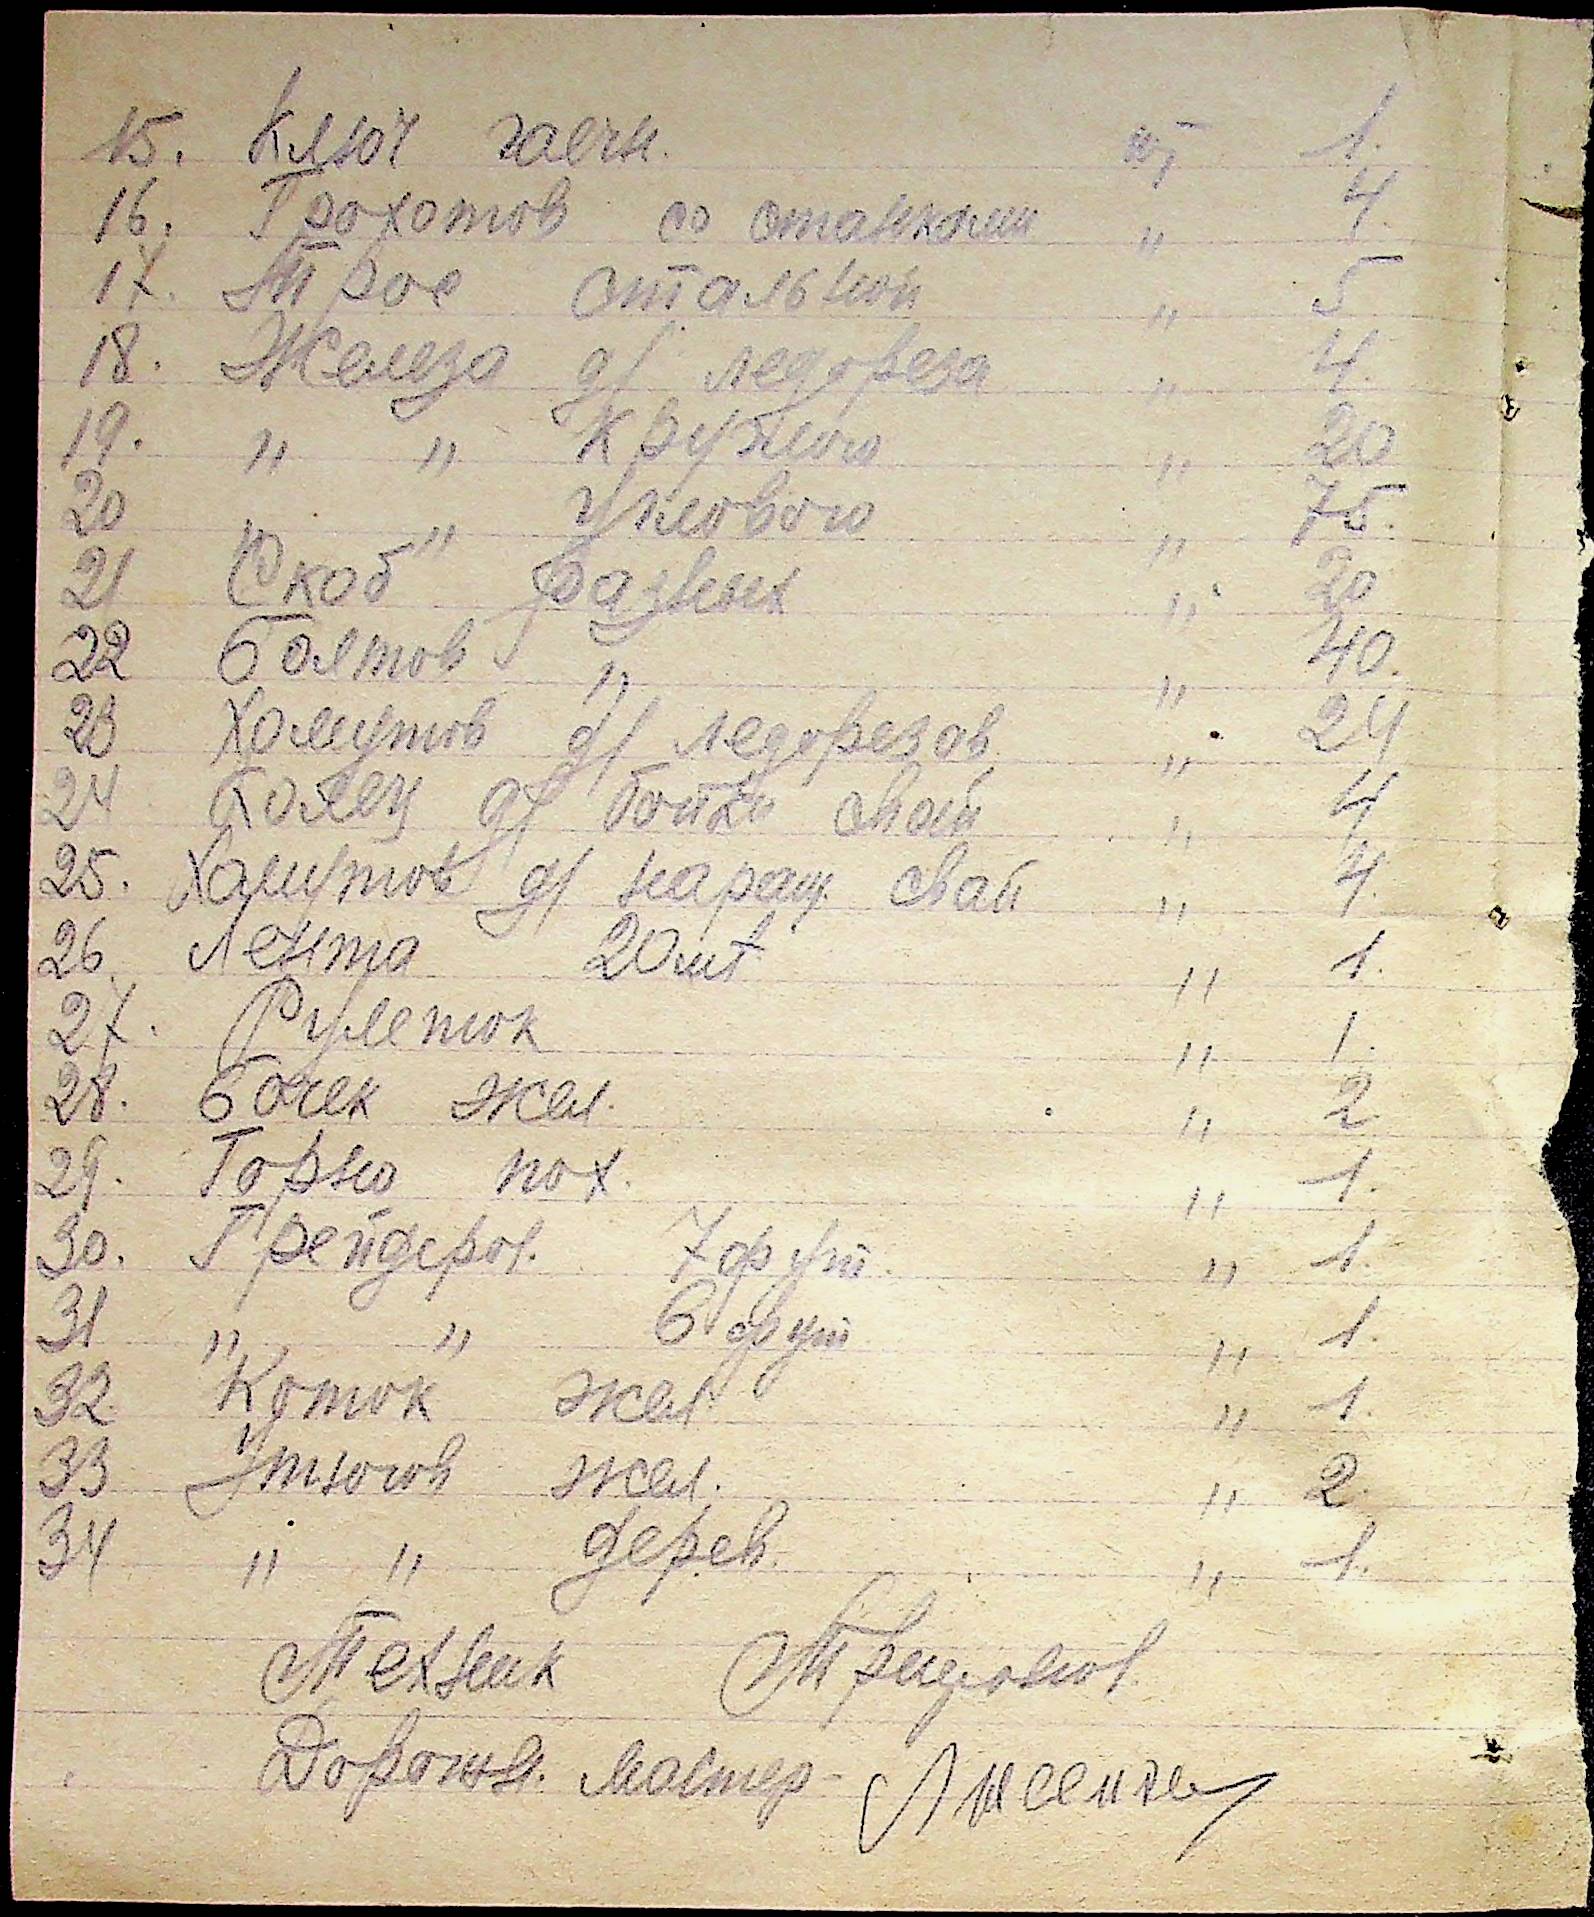 15. Ключ гаечн. шт 1.
16. Грохотов со станками " 4.
17. Трос стальной " 5
18. Железа д/ ледореза " 4.
19. " " Круглого " 20
20 " " Углового " 75.
21 Скоб разных " 20
22 Болтов " " 40.
23 Хомутов д/ ледорезов " 24
24 Колец д/ бойки свай " 4
25. Хомутов д/ наращ. свай " 4.
26. Лента 20 mt " 1.
27. Рулеток " 1.
28. Бочек жел. " 2
29. Горно пох. " 1.
30. Грейдеров. 7 фут. " 1.
31 " " 6 фут " 1.
32. Коток жел " 1.
33 Утюгов жел. " 2.
34 " " дерев. " 1.
Техник
Дорожн. Мастер -